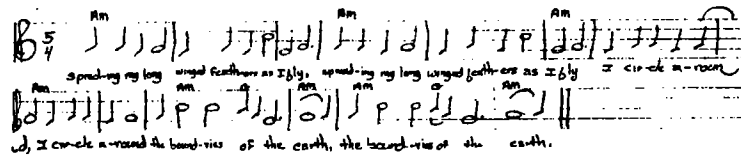 Am Am Am
5
4
spread-ing my long winged feathers as I fly, spread-ing my long winged feath-ers as I fly I cir-cle a-roun
Am Am G Am Am G Am
d, I cir-cle a-round the bound-ries of the earth, the bound-ries of the earth.